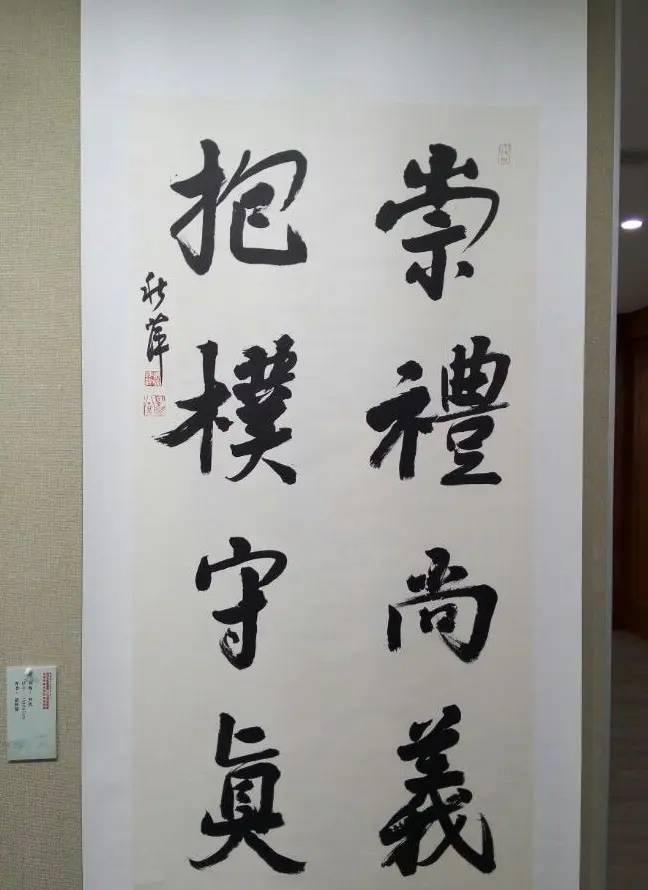 崇禮尚義
抱樸守眞
秋萍